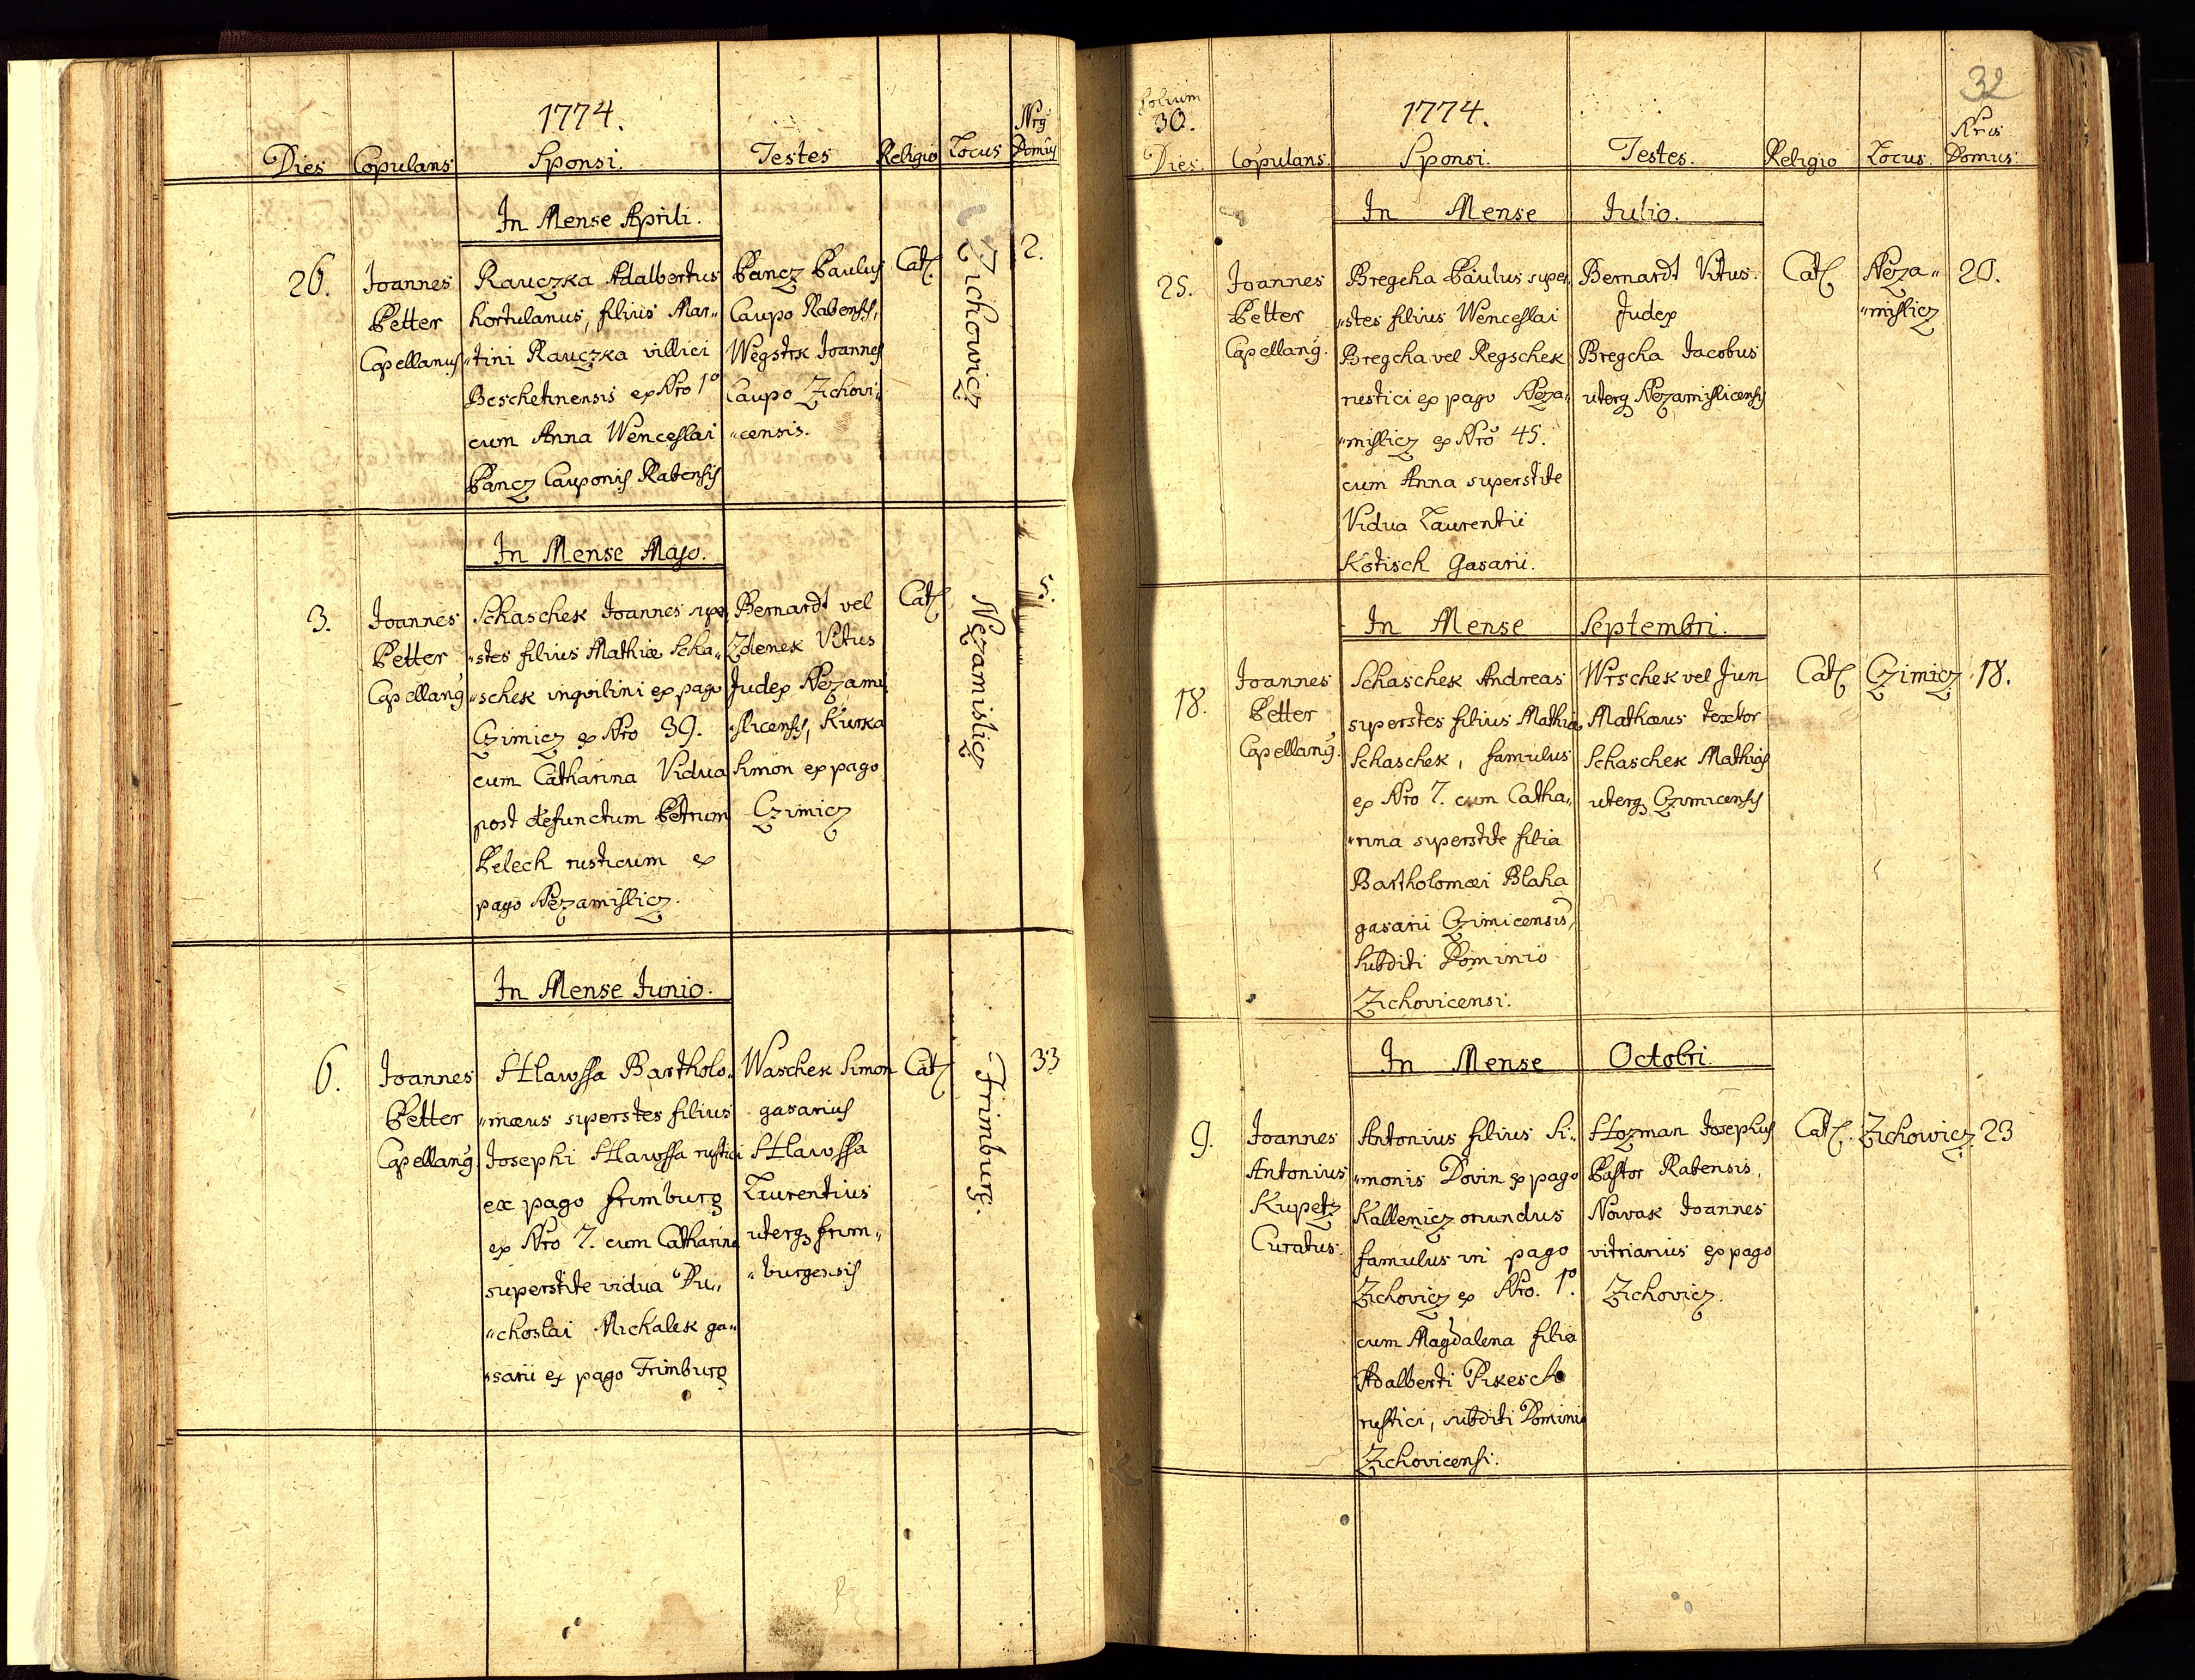 1774.
Nrg
Dies Copulans Sponsi. Testes Religio Locus Domus
In Mense Aprili.
26.
Joannes
Petter
Capellanus
Rauczka Adalbertus
hortulanus, filius Mar„
„tini Rauczka villici
Beschetinensis ex Nro 1º
cum Anna Wenceslai
Pancz Cauponis Rabensis
Pancz Paulus
Caupo Rabensis,
Wegstrk Joannes
Caupo Zichovi„
„censis.
Cat.
Zichowicz
2.
In Mense Majo.
3.
Joannes
Petter
Capellang
Schaschek Joannes supe„
„stes filius Mathiæ Scha„
„schek inquilini ex pago
Czimicz ex Nro 39.
cum Catharina Vidua
post defunctum Petrum
Pelech rusticum ex
pago Nezamislicz.
Bernardt vel
Zdenek Vitus
Judex Nezami
slicensis, Kurka
Simon ex pago
Czimicz
Cat.
Nezamislicz
5.
In Mense Junio.
6.
Joannes
Petter
Capellang
Hlawssa Bartholo„
„mæus superstes filius
Josephi Hlawssa rustici
ex pago Frimburg
ex Nro 7. cum Catharina
superstite vidua Du„
„choslai Michalek ga„
„sarii ex pago Frimburg
Waschek Simon
gasarius
Hlawssa
Laurentius
uterq frim„
„burgensis
Cat.
Frimburg.
33
32
folium
30.
1774.
Nrus
Dies. Copulans. Sponsi. Testes. Religio Locus. Domus.
In Mense Julio.
25.
Joannes
Petter
Capellang.
Bregcha Paulus super„
„stes filius Wenceslai
Bregcha vel Regschek
rustici ex pago Neza„
„mislicz ex Nro 45.
cum Anna superstite
Vidua Laurentii
Kotisch Gasarii.
Bernardt Vitus.
Judex
Bregcha Jacobus
uterq Nezamislicensis
Cat.
Neza„
„mislicz
20.
In Mense Septembri.
18.
Joannes
Petter
Capellang.
Schaschek Andreas
superstes filius Mathiæ
Schaschek, famulus
ex Nro 7. cum Catha„
„rina superstite filia
Bartholomæi Blaha
gasarii Czimicensis,
Subditi Dominio
Zichovicensi.
Wrschek vel Jun
Mathæus textor
Schaschek Mathias
uterq Czimicensis
Cat.
Czimicz
18.
In Mense Octobri.
9.
Joannes
Antonius
Kupetz
Curatus.
Antonius filius Si„
„monis Dovin ex pago
Kallenicz oriundus
famulus in pago
Zichovicz ex Nro. 1º.
cum Magdalena filia
Adalberti Pikesch
rustici, subditi Dominio
Zichovicensi.
Hozman Josephus
Pastor Rabensis,
Nowak Joannes
vitriarius ex pago
Zichovicz.
Cat.
Zichowicz.
23